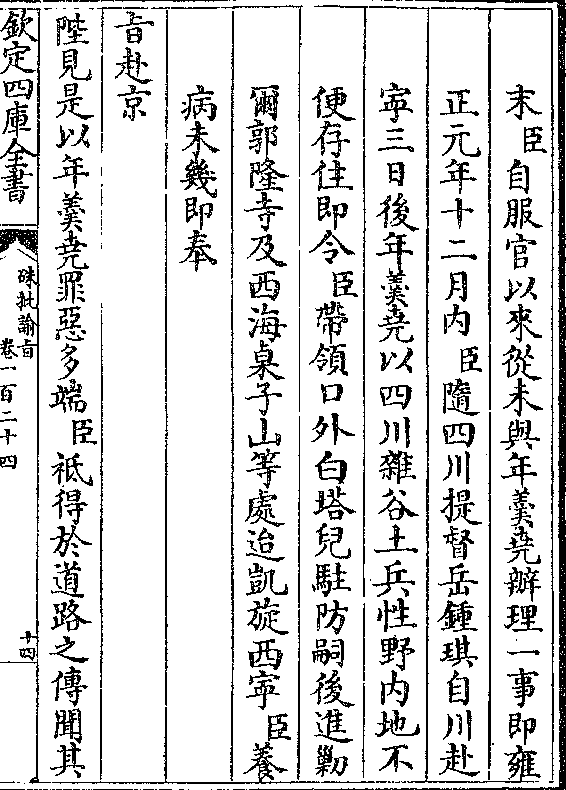 末臣自服官以來從未與年羹堯辦理一事即雍
正元年十二月内臣隨四川提督岳鍾琪自川赴
寕三日後年羹堯以四川雜谷土兵性野内地不
便存住即令臣帶領口外白塔兒駐防嗣後進勦
爾郭隆寺及西海桌子山等處迨凱旋西寕臣養
病未幾即奉
旨赴京
陛見是以年羹堯罪惡多端臣祗得於道路之傳聞其
欽定四庫全書
硃批諭旨
卷一百二十四
十四